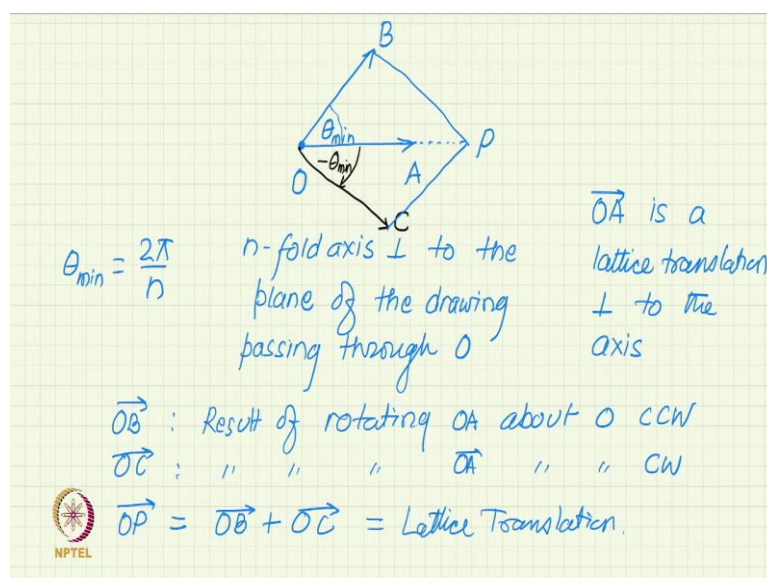 B
θmin
P
-θmin
O
A
C
θmin = 2π/n
n-fold axis ⊥ to the
plane of the drawing
passing through O
OA⃗ is a
lattice translation
⊥ to the
axis
OB⃗ : Result of rotating OA about O CCW
OC⃗ : " " " OA⃗ " " CW
OP⃗ = OB⃗ + OC⃗ = Lattice Translation.
NPTEL